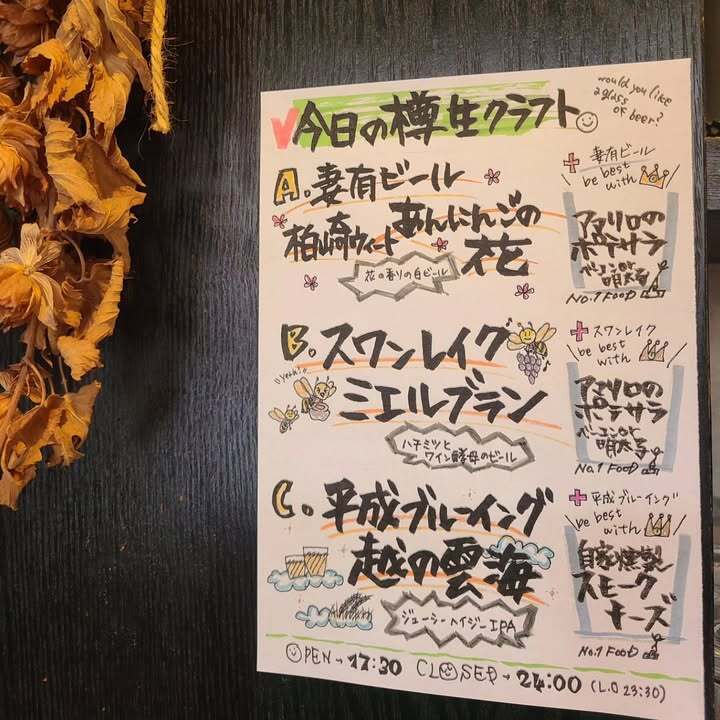 今日の樽生クラフト
would you like
a glass
of beer?
A. 妻有ビール
柏崎ウィート あんにんごの
花
花の香りの白ビール
+ 妻有ビール
be best
with
アメリロの
ポテサラ
ベーコンor
明太子
No.1 FOOD
B. スワンレイク
"Yeah!"
ミエルブラン
ハチミツと
ワイン酵母のビール
+ スワンレイク
be best
with
アメリロの
ポテサラ
ベーコンor
明太子
No.1 FOOD
C. 平成ブルーイング
越の雲海
ジューシーヘイジーIPA
+ 平成ブルーイング
be best
with
自家燻製
スモーク
チーズ
No.1 FOOD
OPEN→17:30 CLOSED→24:00 (L.O 23:30)